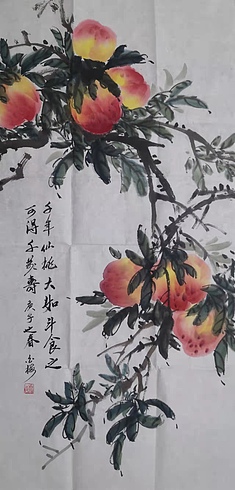 千年仙桃大如斗食之
可得千岁寿庚子之春